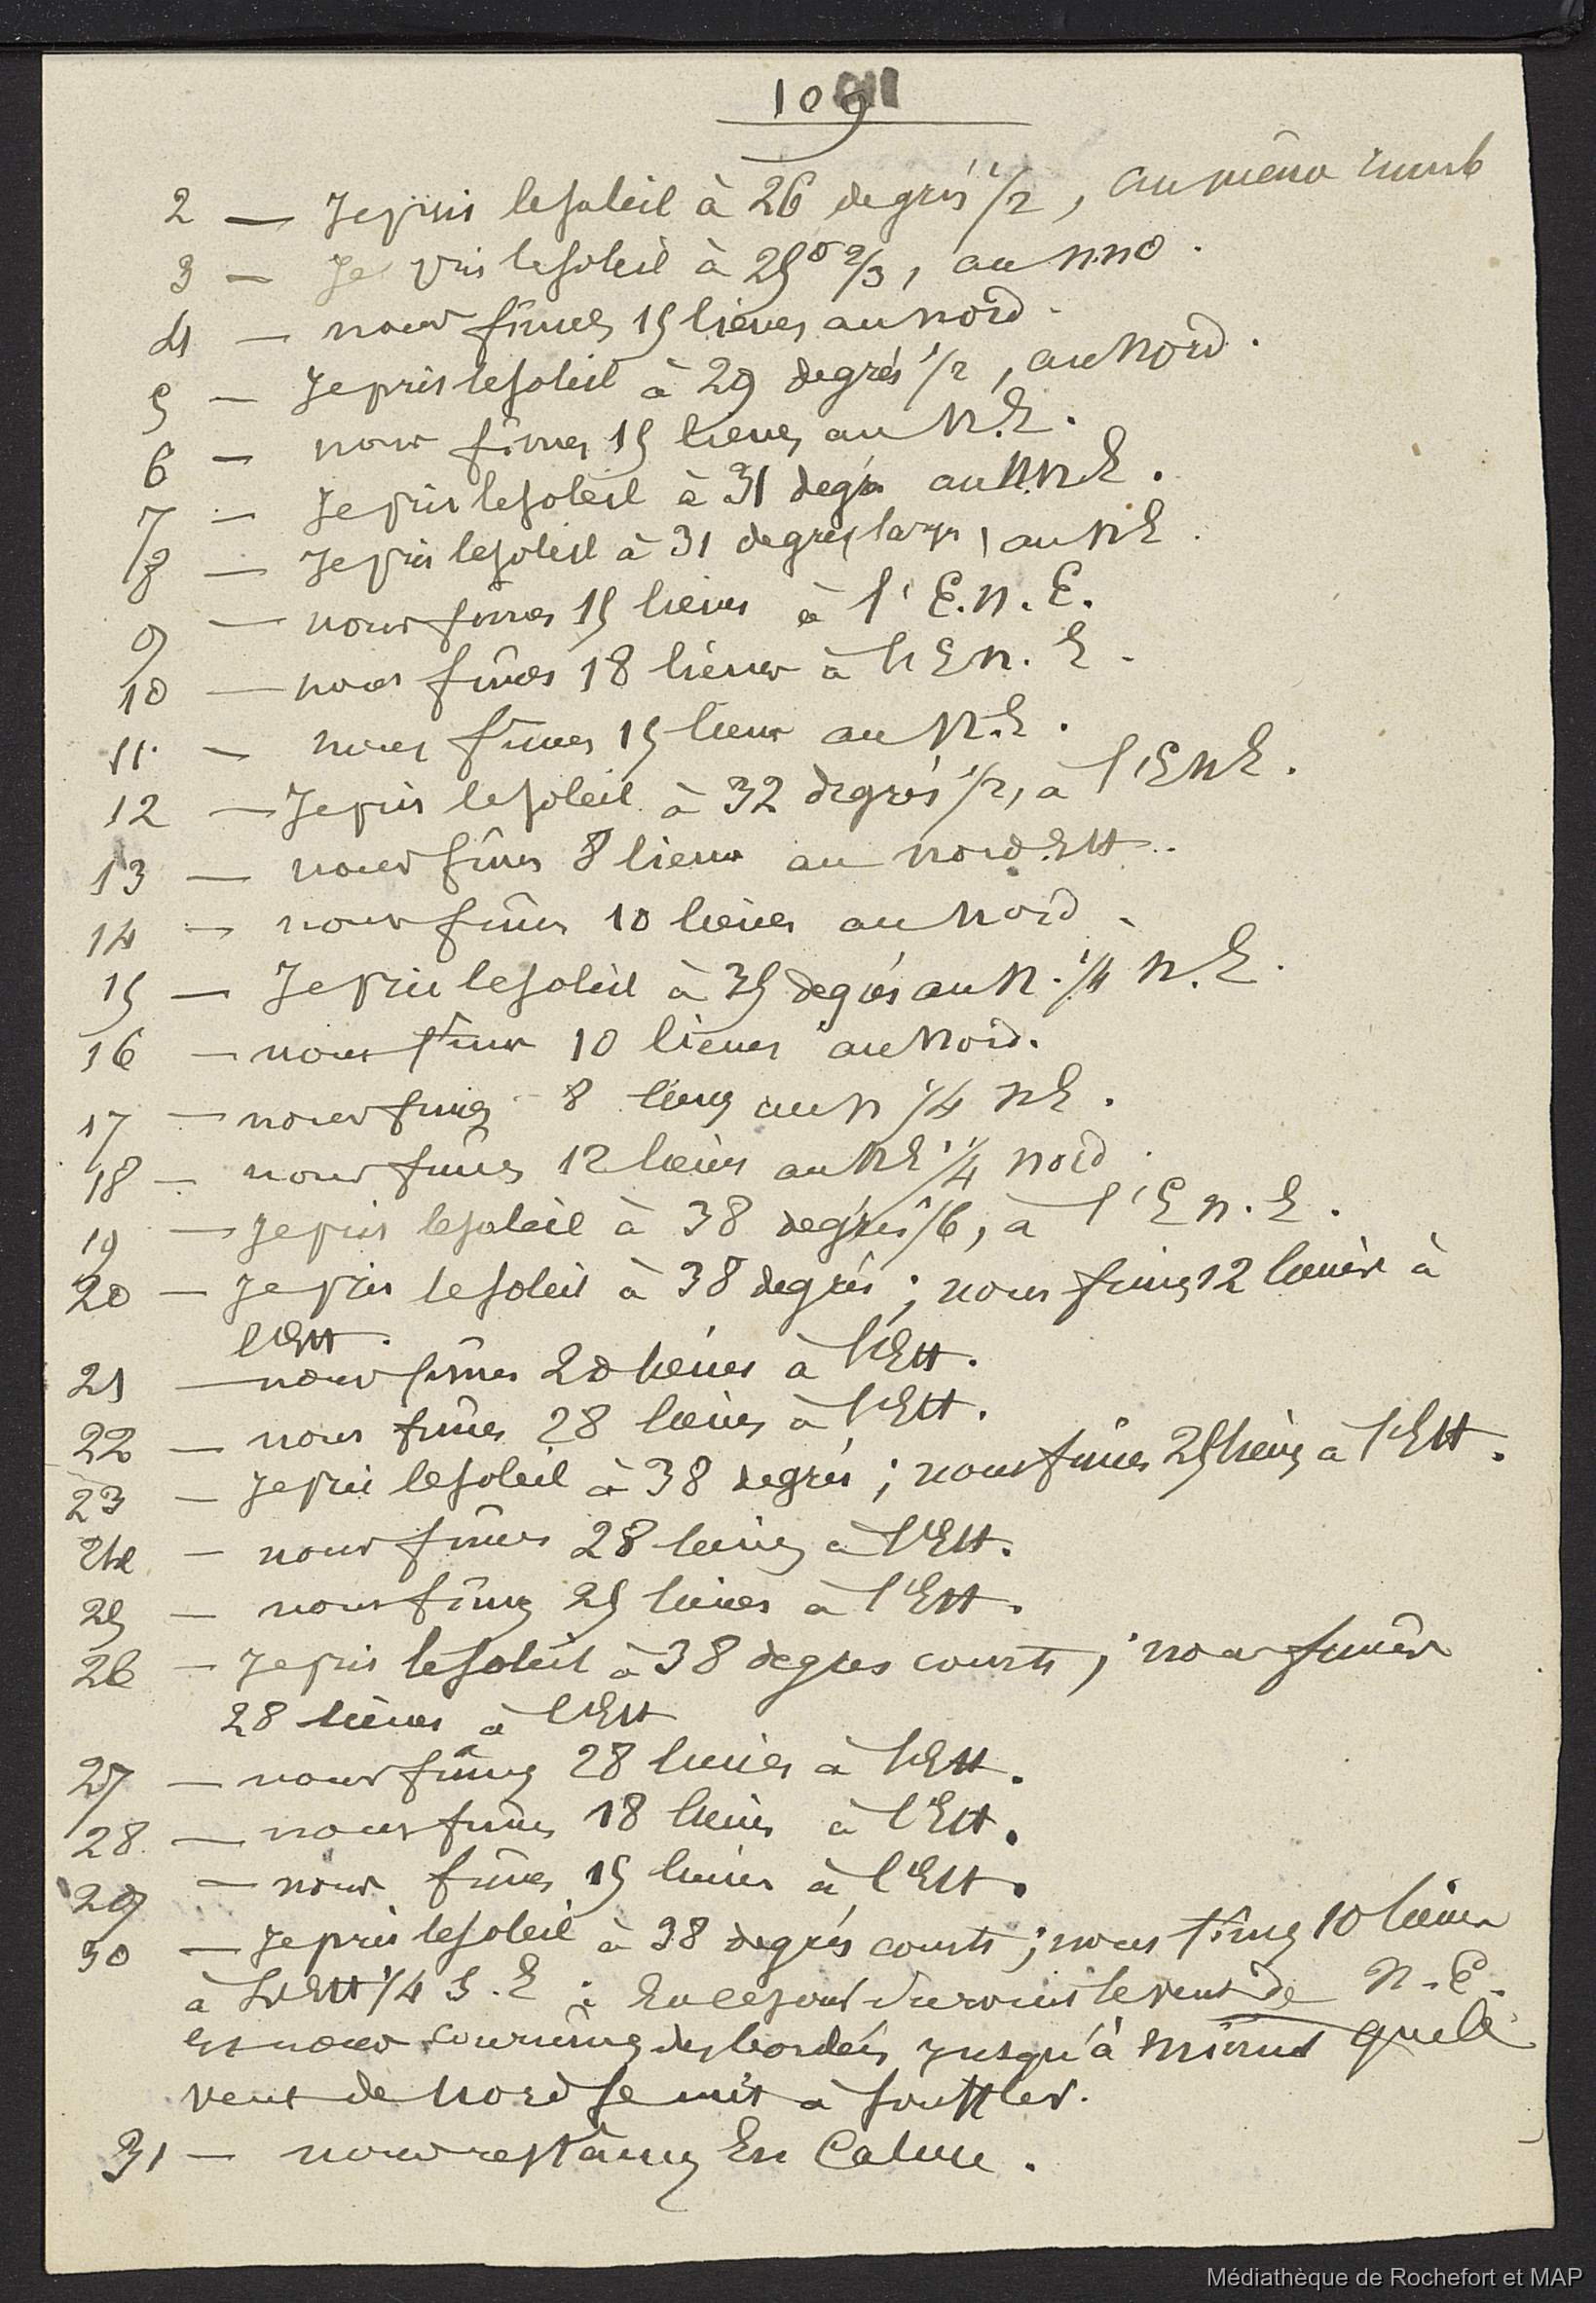 109
2 — Je pris le soleil à 26 degrés 1/2, au même rumb
3 — Je pris le soleil à 25° 2/3, au n.n.o.
4 — nous fîmes 15 lieues au nord.
5 — Je pris le soleil à 29 degrés 1/2, au nord.
6 — nous fîmes 15 lieues au N.E.
7 — Je pris le soleil à 31 degrés au N.N.E.
8 — Je pris le soleil à 31 degrés largs, au NE.
9 — nous fîmes 15 lieues à l'E.N.E.
10 — nous fîmes 18 lieues à l'E N. E.
11. — nous fîmes 15 lieues au N.E.
12 — Je pris le soleil à 32 degrés 1/2, à l'ENE.
13 — nous fîmes 8 lieues au nord.Est.
14 — nous fîmes 10 lieues au nord.
15 — Je pris le soleil à 35 degrés au N. 1/4 N.E.
16 — nous fîmes 10 lieues au nord.
17 — nous fîmes 8 lieues au N 1/4 NE.
18 — nous fîmes 12 lieues au NE 1/4 nord.
19 — Je pris le soleil à 38 degrés 1/6, à l'E N. E.
20 — Je pris le soleil à 38 degrés ; nous fîmes 12 lieues à
l'Est.
21 — nous fîmes 20 lieues à l'Est.
22 — nous fîmes 28 lieues à l'Est.
23 — Je pris le soleil à 38 degrés ; nous fîmes 25 lieues à l'Est.
24 — nous fîmes 28 lieues à l'Est.
25 — nous fîmes 25 lieues à l'Est.
26 — Je pris le soleil à 38 degrés courts ; nous fîmes
28 lieues à l'Est
27 — nous fîmes 28 lieues à l'Est.
28 — nous fîmes 18 lieues à l'Est.
29 — nous fîmes 15 lieues à l'Est.
30 — Je pris le soleil à 38 degrés courts ; nous fîmes 10 lieues
à l'Est 1/4 S.E : En ce jour le vent de N.E.
et nous courûmes des bordées jusqu'à minuit que le
vent de nord se mit à souffler.
31 — nous restâmes En Calme.
Médiathèque de Rochefort et MAP